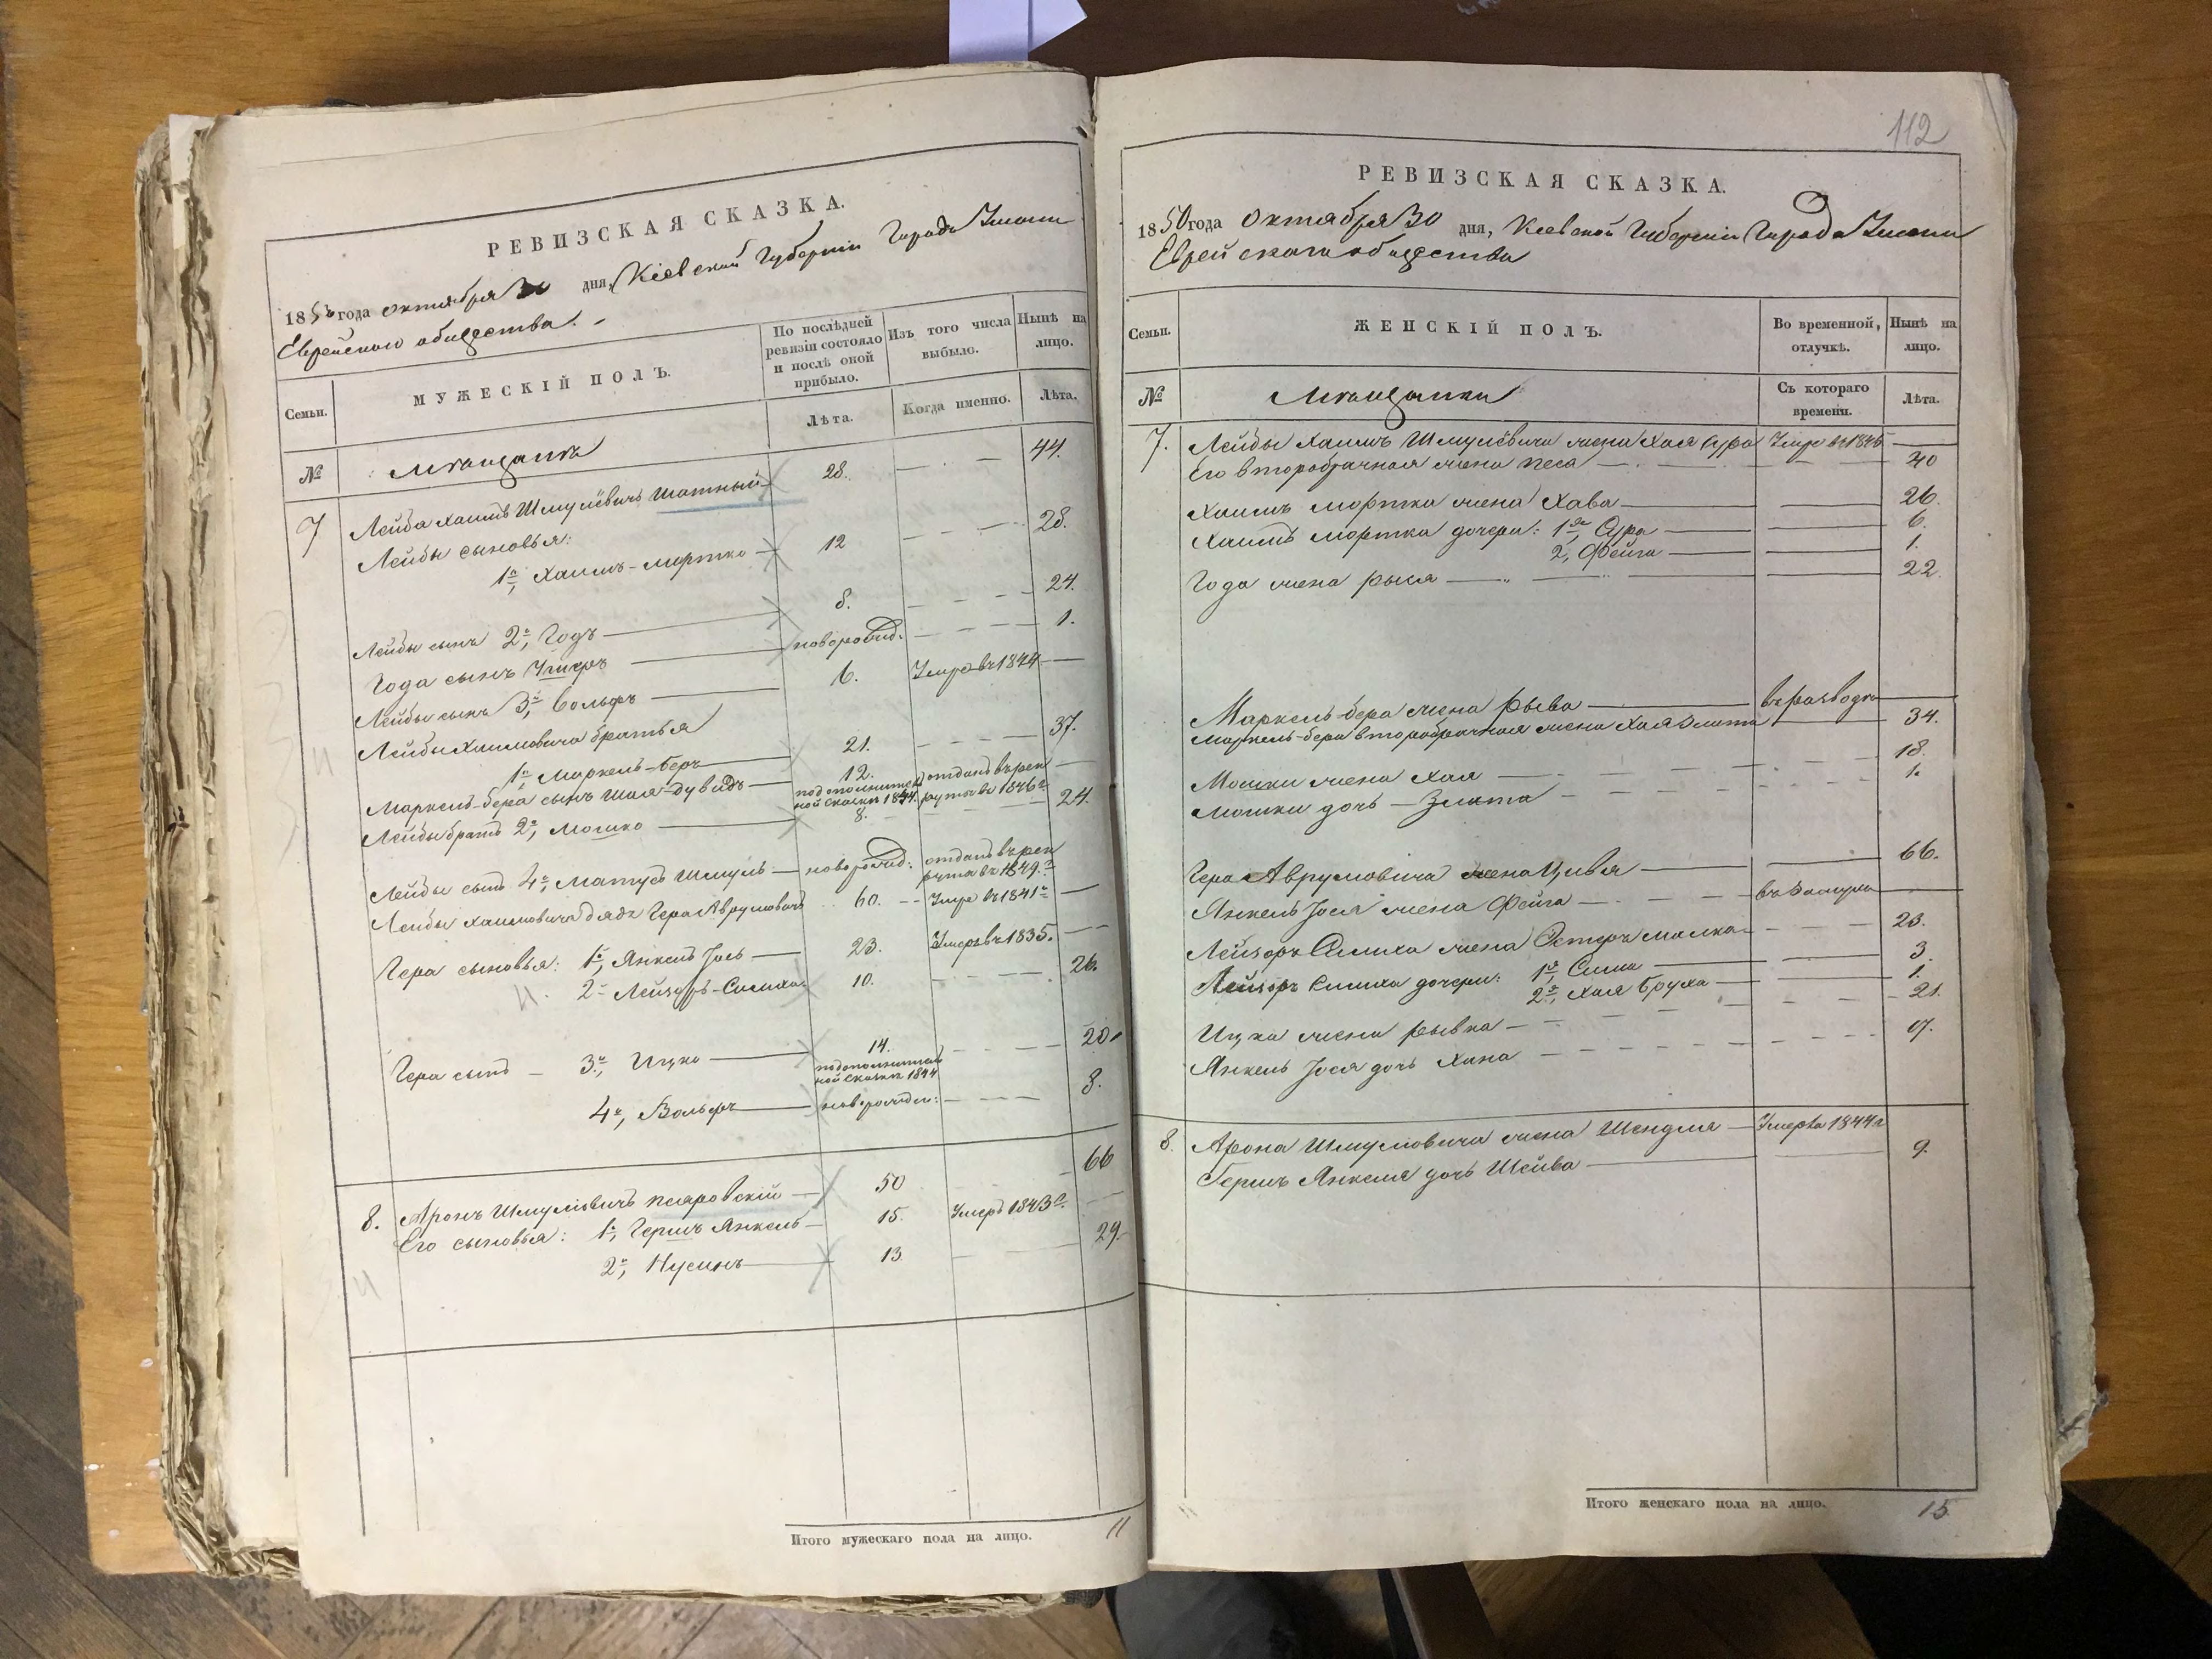 РЕВИЗСКАЯ СКАЗКА.
1850 года октября 30 дня, Кіевской Губерніи Города Умани
Еврейского общества.
Семьи.
МУЖЕСКІЙ ПОЛЪ.
По послѣдней ревизіи состояло и послѣ оной прибыло.
Изъ того числа выбыло.
Нынѣ на лицо.
№
Мещанъ
Лѣта.
Когда именно.
Лѣта.
7 Лейба Хаимъ Шмулёвичъ Шатный 28. 44.
Лейбы сыновья:
1й, Хаимъ-Мортко 12 28.
Лейбы сынъ 2й, Годъ 8. 24.
Года сынъ новорожд. 1.
Лейбы сынъ 3й, Вольфъ 6. Умре въ 1844
Лейбы Хаимовича братья
1й Маркель-Беръ 21. 37.
Маркель-бера сынъ Шая-Дувидъ 12. по дополнительной сказкѣ 1834. отданъ въ рекруты въ 1846г
Лейбы братъ 2й, Мошко 8. 24.
Лейбы сынъ 4й, Матусъ Шмуль новорожд: отданъ въ рекруты въ 1849г
Лейбы Хаимовича дядя Гера Аврумовичъ 60. Умре въ 1841г
Гера сыновья: 1й, Янкель Іось 23. Умеръ въ 1835.
2й Лейзоръ-Симха 10. 26.
Гера сынъ 3й, Ицко 14. по дополнительной сказкѣ 1844 20.
4й, Вольфъ новорожден: 8.
8. Аронъ Шмулiовичъ Песяровскій 50 66
Его сыновья: 1й, Гершъ Янкель 15. Умеръ 1843г.
2й, Нусинъ 13. 29.
Итого мужескаго пола на лицо. 11
112
РЕВИЗСКАЯ СКАЗКА.
1850 года октября 30 дня, Кіевской Губерніи Города Умани
Еврейскаго общества
Семьи.
ЖЕНСКІЙ ПОЛЪ.
Во временной, отлучкѣ.
Нынѣ на лицо.
№
Мещанки
Съ котораго времени.
Лѣта.
7. Лейбы Хаимъ Шмулёвича жена Хая Сура Умре въ 1845
Его второбрачная жена Песа 40
Хаимъ Мортка жена Хава 26.
Хаимъ Мортка дочери: 1я, Сура 6.
2, Фейга 1.
Года жена Рыся 22.
Маркель-бера жена Рыва въ разводѣ
Маркель-бера второбрачная жена Хая Злата 34.
Мошки жена Хая 18.
Мошки дочь Злата 1.
Гера Аврумовича жена Цивья 66.
Янкель Іося жена Фейга въ замуже
Лейзоръ Симха жена Эстеръ Малка 23.
Лейзоръ Симха дочери: 1я Сима 3.
2я, Хая Бруха 1.
Ицка жена Рывка 21.
Янкель Іося дочь Хана 17.
8. Арона Шмуловича жена Шендля Умерла 1844г
Гершъ Янкеля дочь Шейва 9.
Итого женскаго пола на лицо. 15